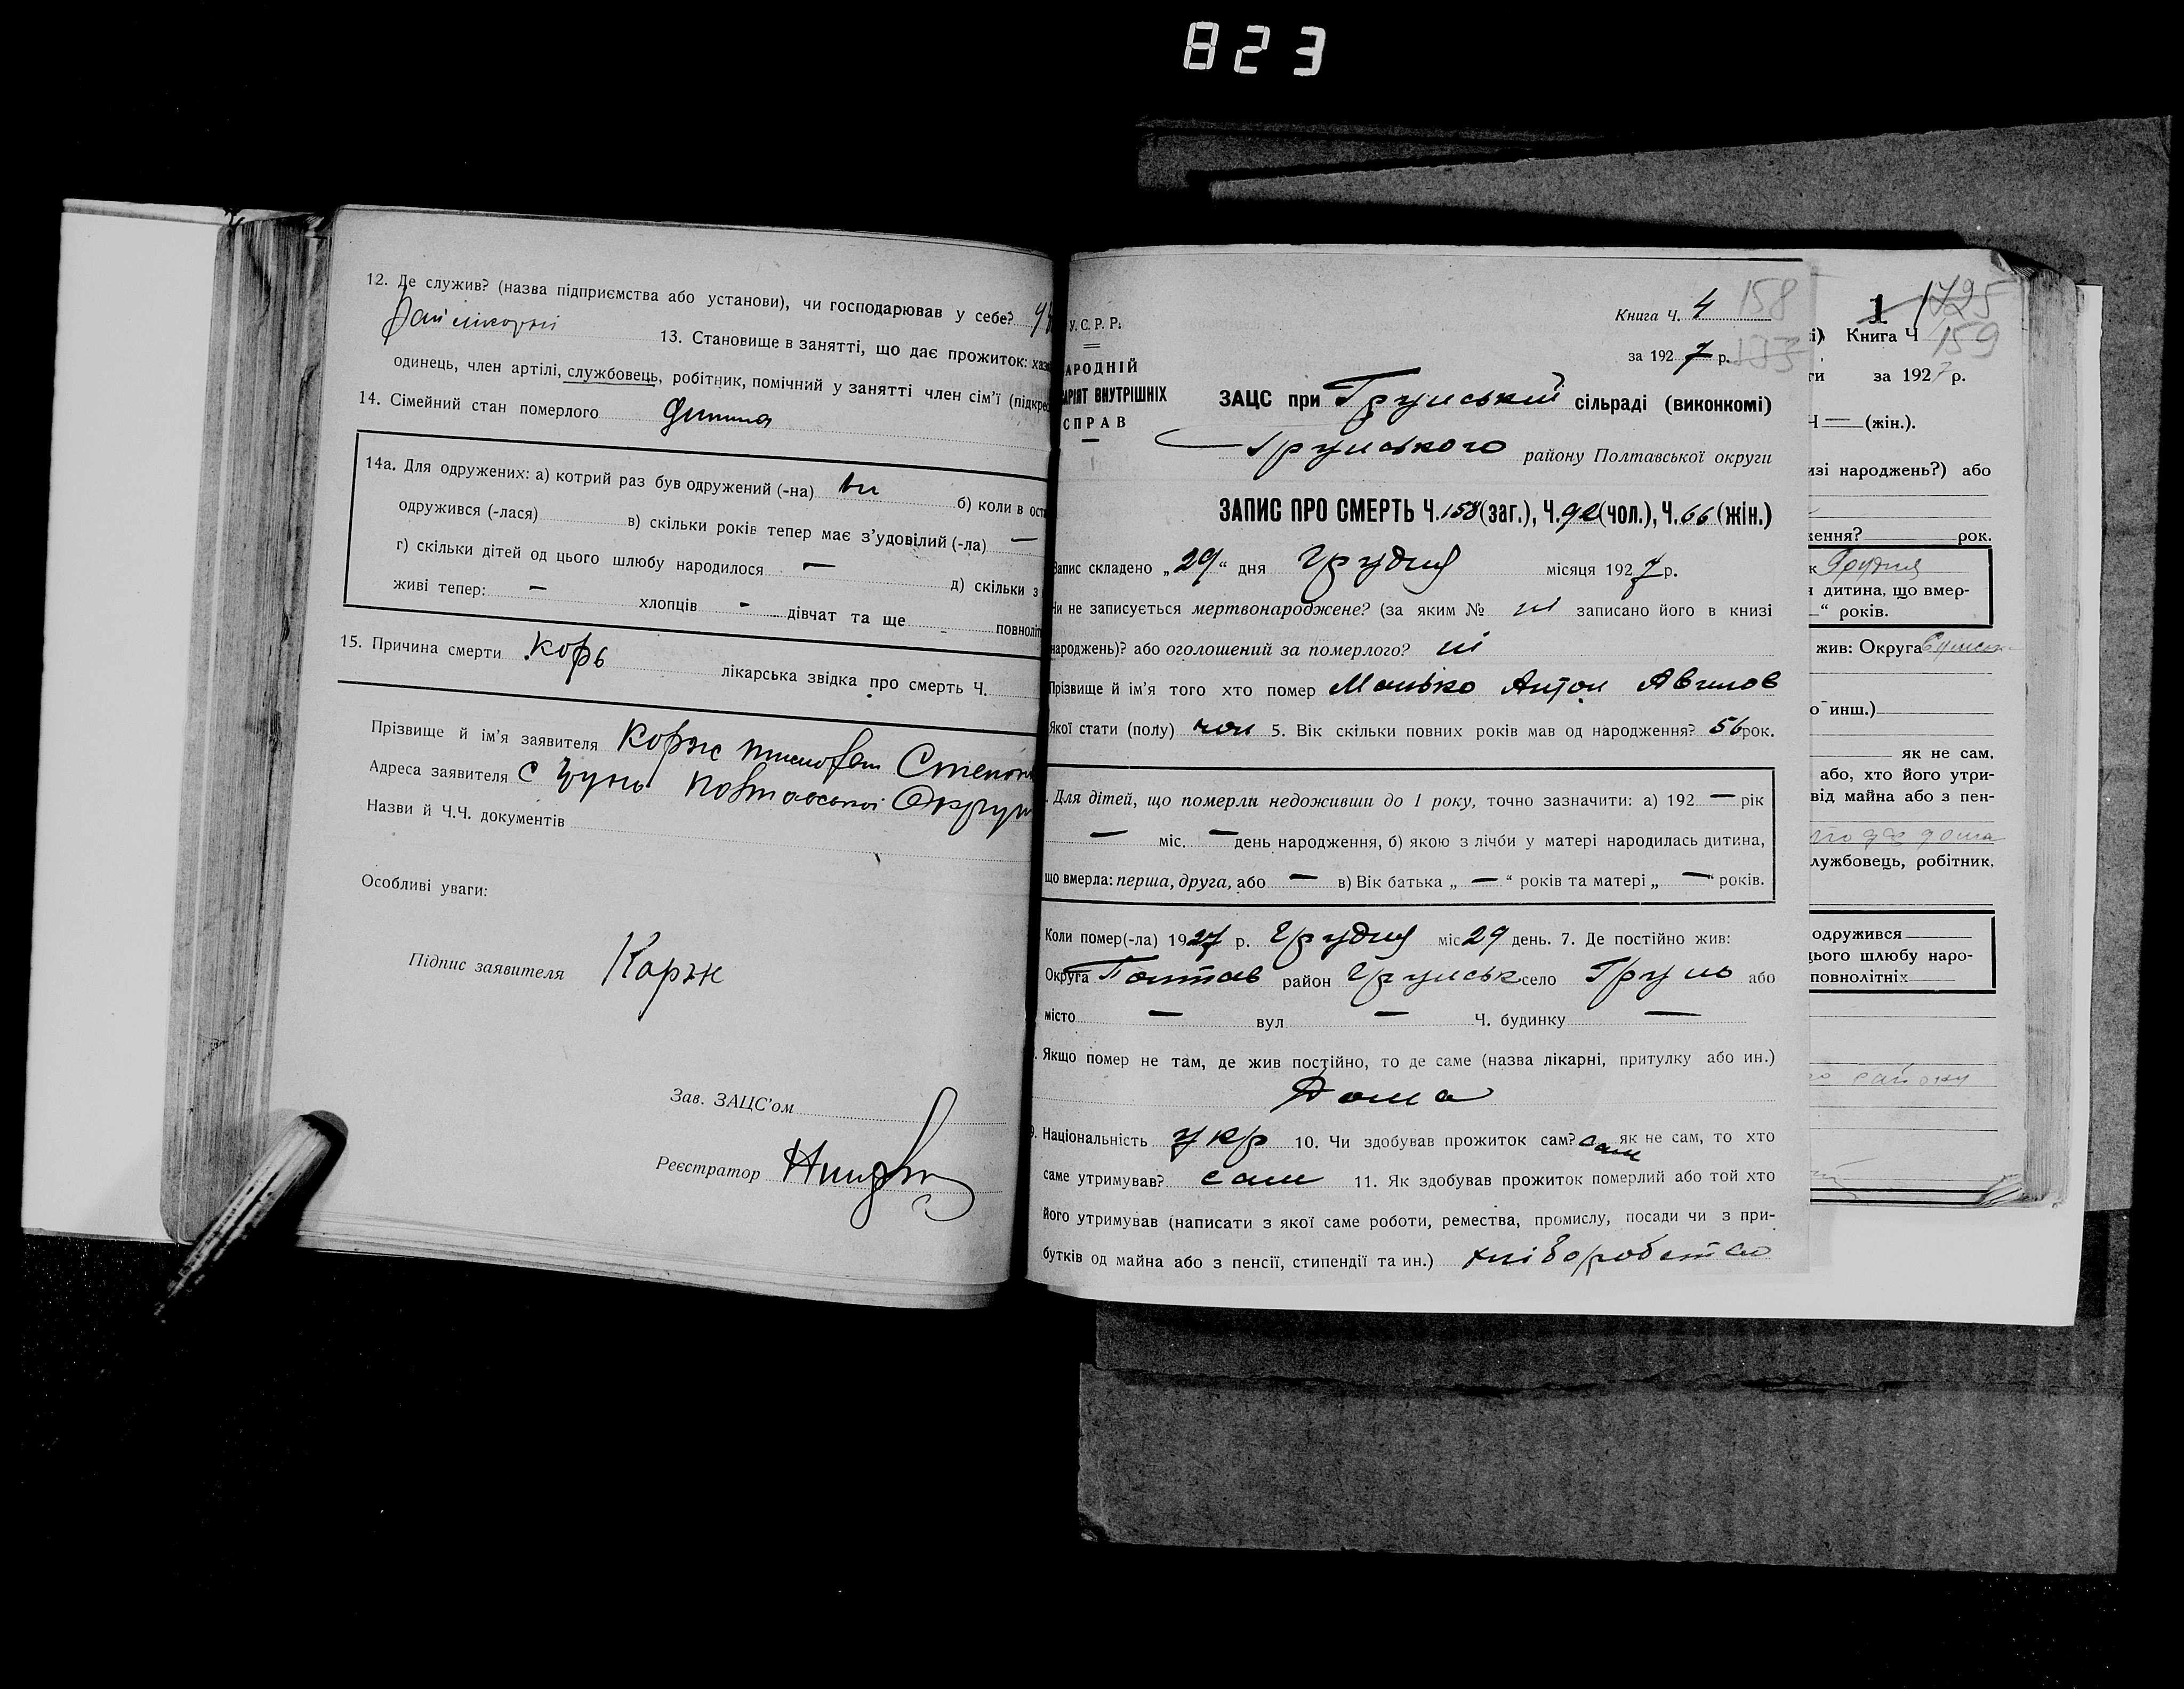 823
12. Де служив? (назва підприємства або установи), чи господарював у себе?
13. Становище в занятті, що дає прожиток: хазя
одинець, член артілі, службовець, робітник, помічний у занятті член сім'ї (підкрес
14. Сімейний стан померлого дитина
14а. Для одружених: а) котрий раз був одружений (-на) ні б) коли в ост
одружився (-лася) в) скільки років тепер має з'удовілий (-ла) —
г) скільки дітей од цього шлюбу народилося — д) скільки з
живі тепер: — хлопців - дівчат та ще - повноліт
15. Причина смерти корь лікарська звідка про смерть Ч.
Прізвище й ім'я заявителя Корж Тимофет Степон
Адреса заявителя с Грунь Полтавської Округи
Назви й Ч.Ч. документів
Особливі уваги:
Підпис заявителя Корж
Зав. ЗАЦС'ом
Реєстратор
У.С.Р.Р.
АРОДНІЙ
АРІЯТ ВНУТРІШНІХ
СПРАВ
Книга Ч. 4 158
за 1927 р. 133
ЗАЦС при Грунській сільраді (виконкомі)
Грунського району Полтавської округи
ЗАПИС ПРО СМЕРТЬ Ч. 158 (заг.), Ч. 92 (чол.), Ч. 66 (жін.)
Запис складено „29“ дня грудня місяця 1927 р.
Чи не записується мертвонароджене? (за яким № ні записано його в книзі
народжень)? або оголошений за померлого? ні
Прізвище й ім'я того хто помер Манько Антон Авилов
Якої стати (полу) чол 5. Вік скільки повних років мав од народження? 56 рок.
. Для дітей, що померли недоживши до 1 року, точно зазначити: а) 192 — рік
— міс. — день народження, б) якою з лічби у матері народилась дитина,
що вмерла: перша, друга, або — в) Вік батька „ — “ років та матері „ — “ років.
Коли помер(-ла) 1927 р. грудня міс 29 день. 7. Де постійно жив:
Округа Полтав район Грунськ село Грунь або
місто — вул — Ч. будинку —
. Якщо помер не там, де жив постійно, то де саме (назва лікарні, притулку або ин.)
Дома
9. Національність укр 10. Чи здобував прожиток сам? сам як не сам, то хто
саме утримував? сам 11. Як здобував прожиток померлий або той хто
його утримував (написати з якої саме роботи, ремества, промислу, посади чи з при-
бутків од майна або з пенсії, стипендії та ин.) хліборобство
1 125
і) Книга Ч 159
ти за 1927 р.
Ч — (жін.).
изі народжень?) або
ження? рок.
к Грудня
я дитина, що вмер-
—“ років.
жив: Округа Сумськ
о инш.)
як не сам,
або, хто його утри-
від майна або з пен-
лужбовець, робітник,
одружився
цього шлюбу наро-
повнолітніх
району